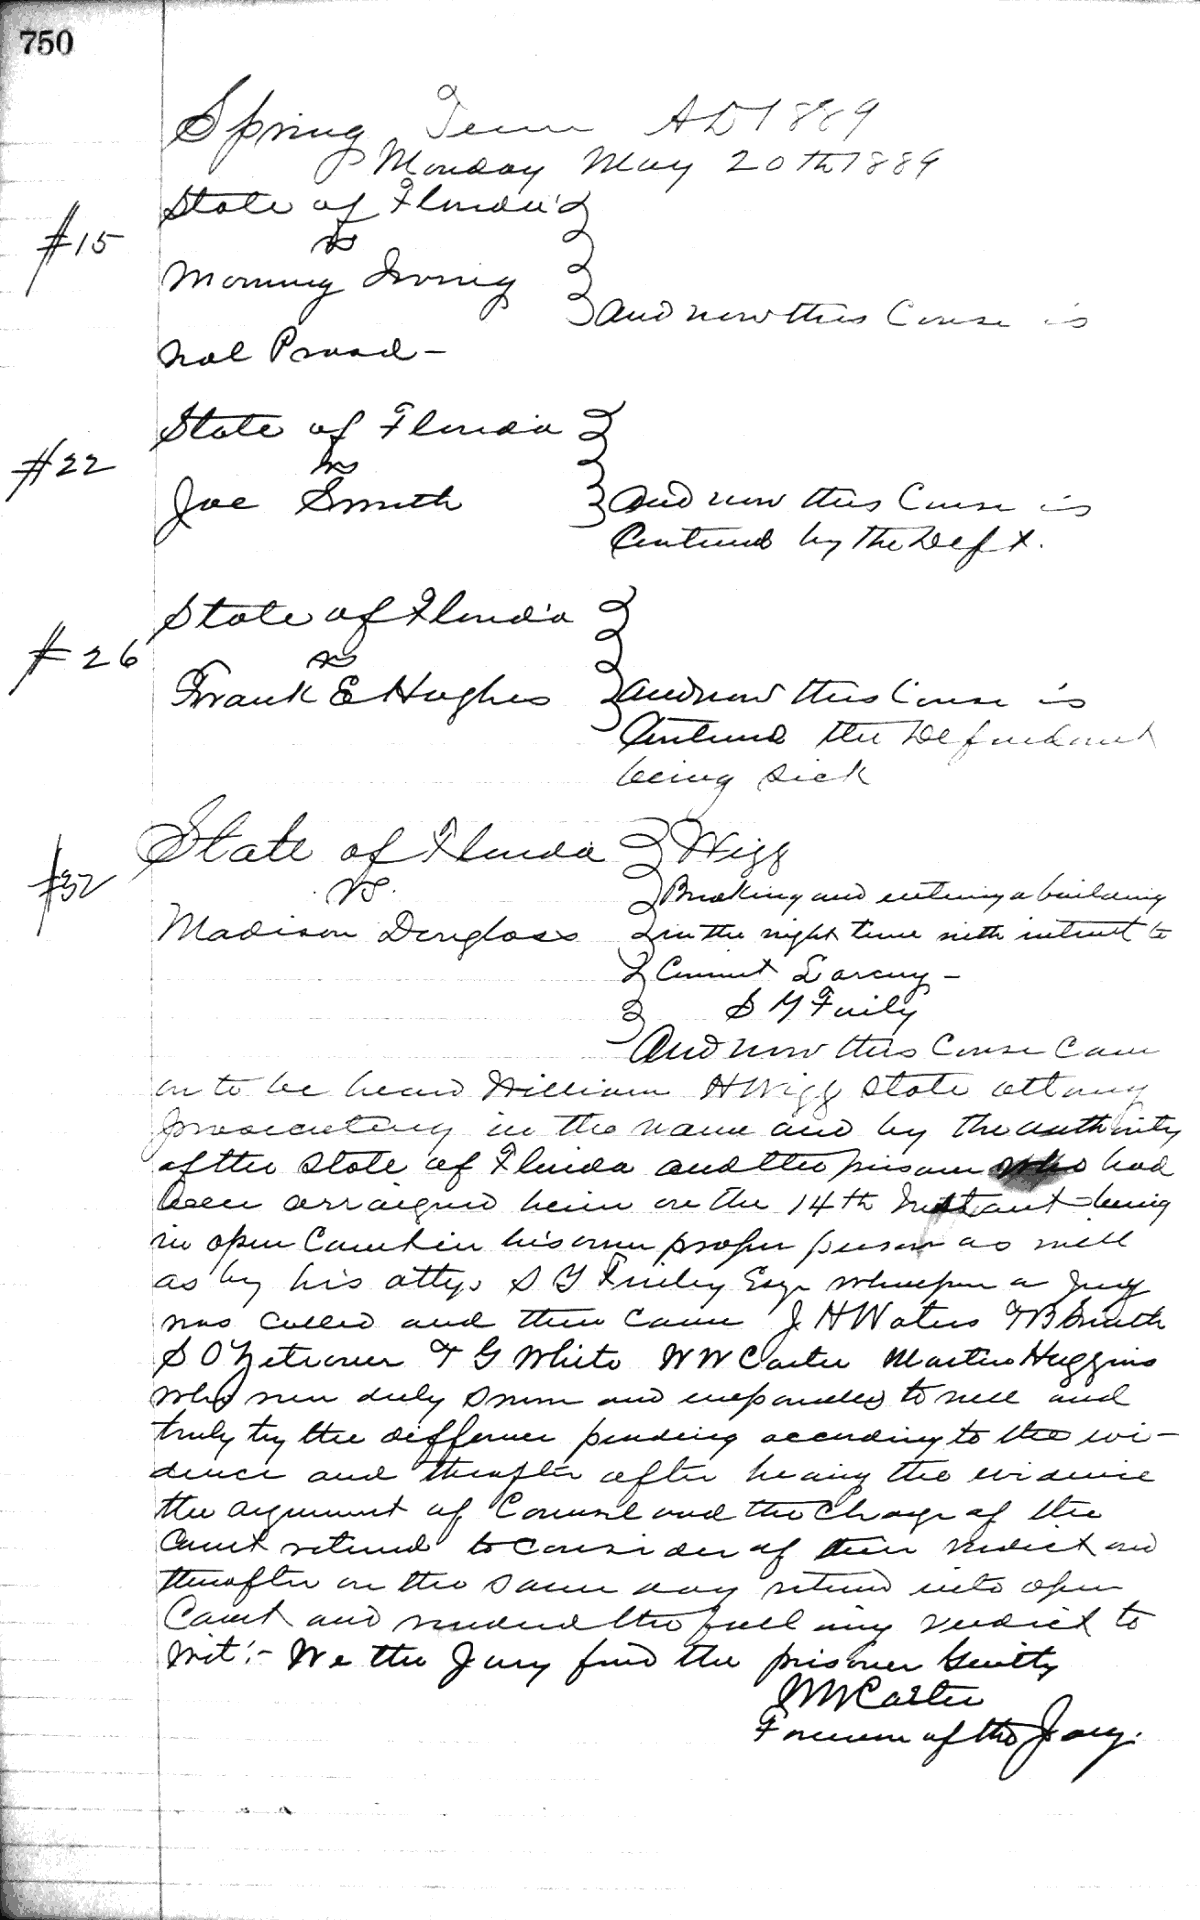 750
Spring Term AD 1889
Monday May 20th 1889
State of Florida
#15 vs
Morning Irving
And now this Cause is
Nol Prossd -
State of Florida
#22 vs
Joe Smith And now this Cause is
Continued by the Deft.
State of Florida
#26 vs
Frank E Hughes And now this Cause is
Continued the Defendant
being sick
State of Florida Wigg
#32 vs. Breaking and entering a building
Madison Douglass in the night time with intent to
Commit Larceny -
S Y Finley
And now this Cause Came
on to be heard William H Wigg State attorney
prosecuting in the name and by the authority
of the State of Florida and the prisoner who had
been arraigned herein on the 14th Instant being
in open Court in his own proper person as well
as by his attys S Y Finley Esqr whereupon a Jury
was called and then came J H Waters T B Smith
S O T G White W W Carter Martin Huggins
who were duly sworn and empanelled to well and
truly try the difference pending according to the evi-
dence and thereafter after hearing the evidence
the argument of Counsel and the Charge of the
Court retired to consider of their verdict and
thereafter on the same day returned into open
Court and rendered the following verdict to
wit:- We the Jury find the prisoner Guilty
W W Carter
Foreman of the Jury.